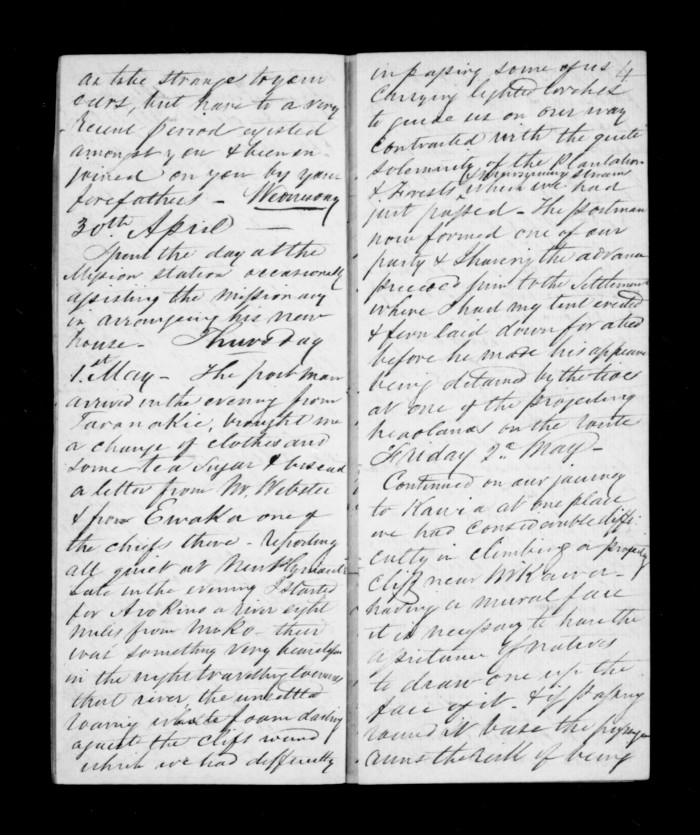 as take strange to your
ears, but have to a very
recent period existed
amongst you & been en-
joined on you by your
forefathers - Wednesday
30th April —
Spent the day at the
Mission station occasionally
assisting the missionary
in arrangeing his new
house - Thursday
1st May - The post man
arrived in the evening from
Taranakie, brought me
a change of clothes and
some tea sugar & biscuit
a letter from Mr. Webster
& from Ewaka one of
the chiefs there - reporting
all quiet at New Plymouth
Late in the evening I started
for Avokino a river eight
miles from Moko - there
was something very beautiful
in the night travelling towards
that river, the unsettled
roaring foam dashing
against the cliffs round
which we had difficulty
4
in passing some of us
Carrying lighted torches
to guide us on our way
contrasted with the quite
solemnity of the Plantation
& Forests & stream
which we had
just passed - The postman
now formed one of our
party & having the advance
preceeded him to the Settlement
where I had my tent erected
& fern laid down for a bed
before he made his appearance
being detained by the tide
at one of the projecting
headlands on the route
Friday 2d May -
Continued on our journey
to Kawia at one place
we had considerable diffi-
culty in climbing a projecting
cliff near
having a mural face
it is necessary to have the
assistance of natives
to draw one up the
face of it - & if passing
round it base the passenger
runs the risk of being